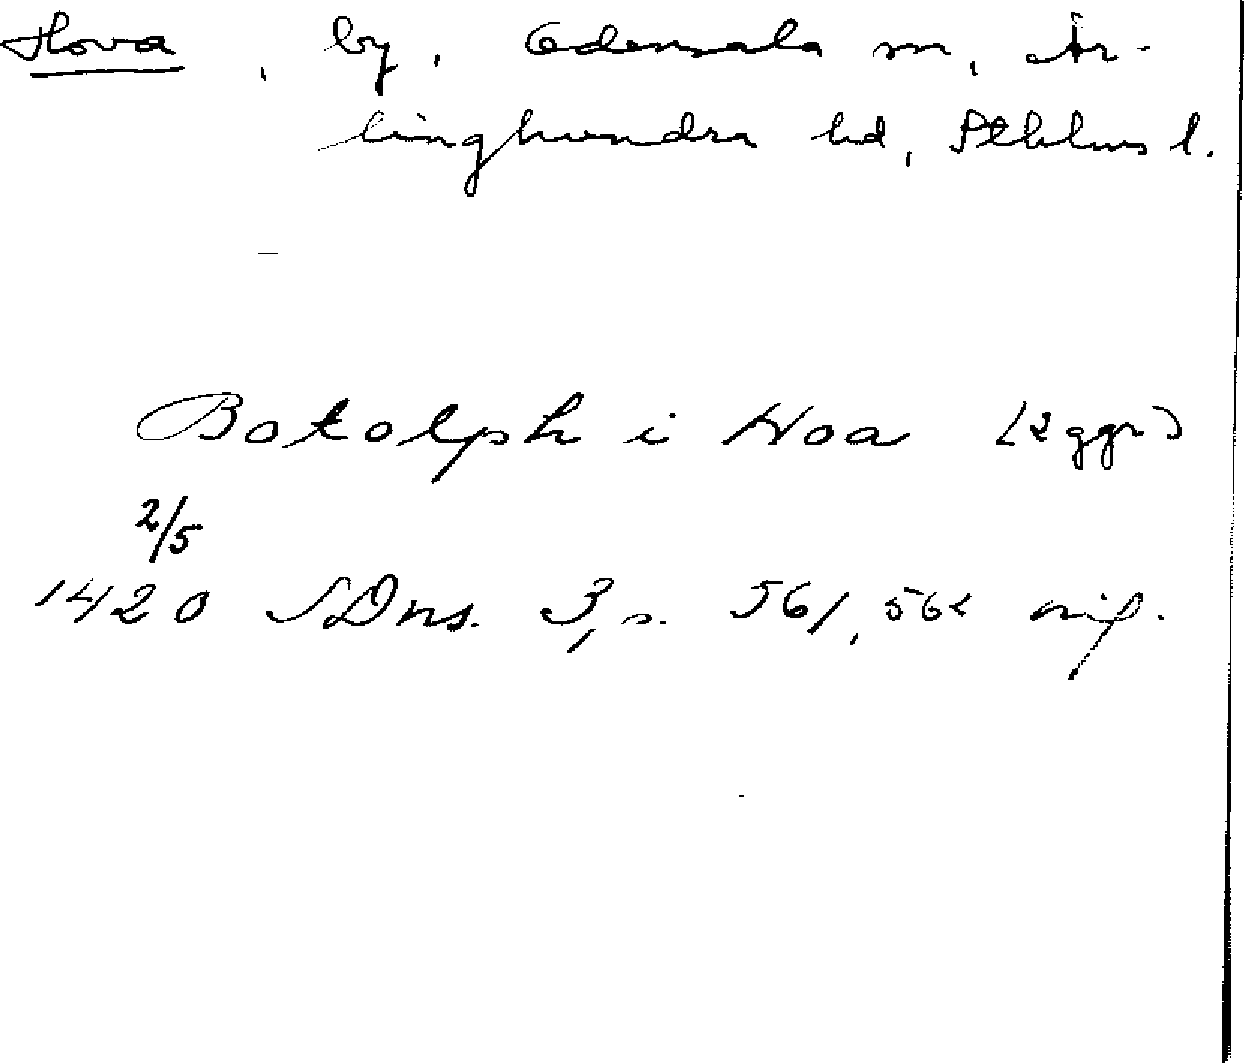 Hova, by, Odensala sn, Är-
linghundra hd, Sthlms l.
Botolph i Hoa (2 ggr)
2/5
1420 SDns. 3, s. 561, 562 avs.